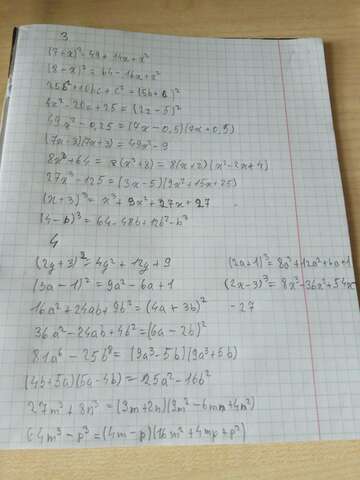 3
(7+x)² = 49 + 14x + x²
(8-x)² = 64 - 16x + x²
25b² + 10bc + c² = (5b + c)²
4x² - 20x + 25 = (2x - 5)²
49x² - 0,25 = (7x - 0,5)(7x + 0,5)
(7x - 3)(7x + 3) = 49x² - 9
8x³ + 64 = 8(x³ + 8) = 8(x + 2)(x² - 2x + 4)
27x³ - 125 = (3x - 5)(9x² + 15x + 25)
(x + 3)³ = x³ + 9x² + 27x + 27
(4 - b)³ = 64 - 48b + 12b² - b³
4
(2y + 3)² = 4y² + 12y + 9
(9a - 1)² = 9a² - 6a + 1
16a² + 24ab + 9b² = (4a + 3b)²
36a² - 24ab + 4b² = (6a - 2b)²
81a⁶ - 25b² = (9a³ - 5b)(9a³ + 5b)
(4b + 5a)(5a - 4b) = 25a² - 16b²
27m³ + 8n³ = (3m + 2n)(9m² - 6mn + 4n²)
64m³ - p³ = (4m - p)(16m² + 4mp + p²)
(2a + 1)³ = 8a³ + 12a² + 6a + 1
(2x - 3)³ = 8x³ - 36x² + 54x
- 27